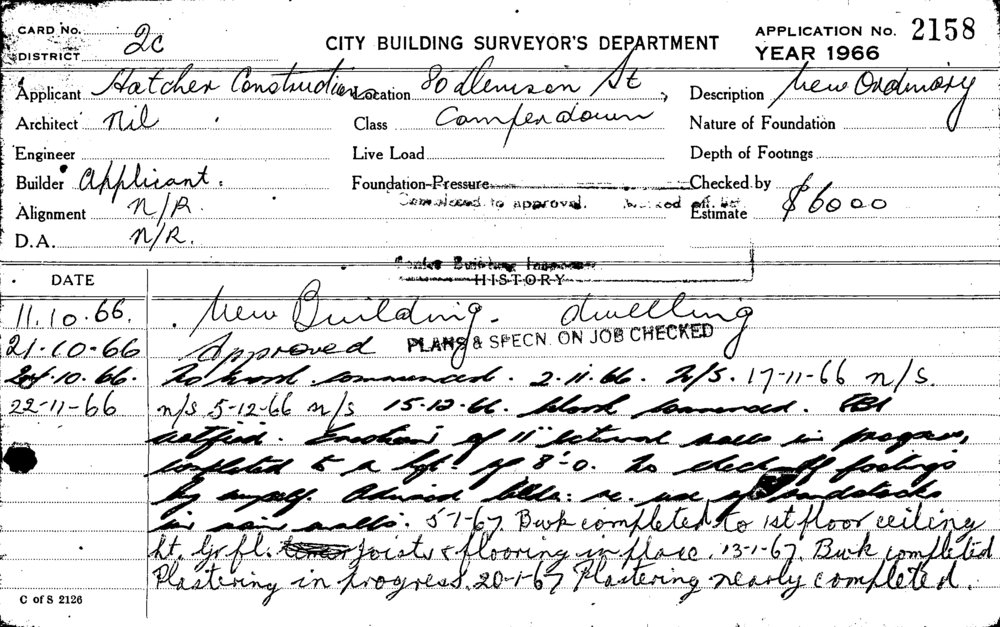 CARD No. 2c
DISTRICT
CITY BUILDING SURVEYOR'S DEPARTMENT
APPLICATION No. 2158
YEAR 1966
Applicant Hatcher Constructions Location 80 Denison St, Description New Ordinary
Architect nil Class Camperdown Nature of Foundation
Engineer Live Load Depth of Footings
Builder Applicant. Foundation-Pressure Checked by
Alignment N/R. Completed to approval. Estimate $6000
D.A. N/R.
DATE HISTORY
11.10.66. New Building. dwelling
21.10.66 Approved PLANS & SPECN. ON JOB CHECKED
24.10.66. No work commenced. 2.11.66. N/S. 17-11-66 n/s.
22-11-66 n/s 5-12-66 n/s 15.12.66. Work commenced. FBI
notified. Erection of 11" external walls in progress,
completed to a hgt. of 8'-0. No check of footings
by myself. Advised bldr. re. use of sandstocks
in main walls. 5-1-67. Bwk completed to 1st floor ceiling
ht. Gr fl. joists & flooring in place. 13-1-67. Bwk completed
Plastering in progress. 20-1-67 Plastering nearly completed.
C of S 2126